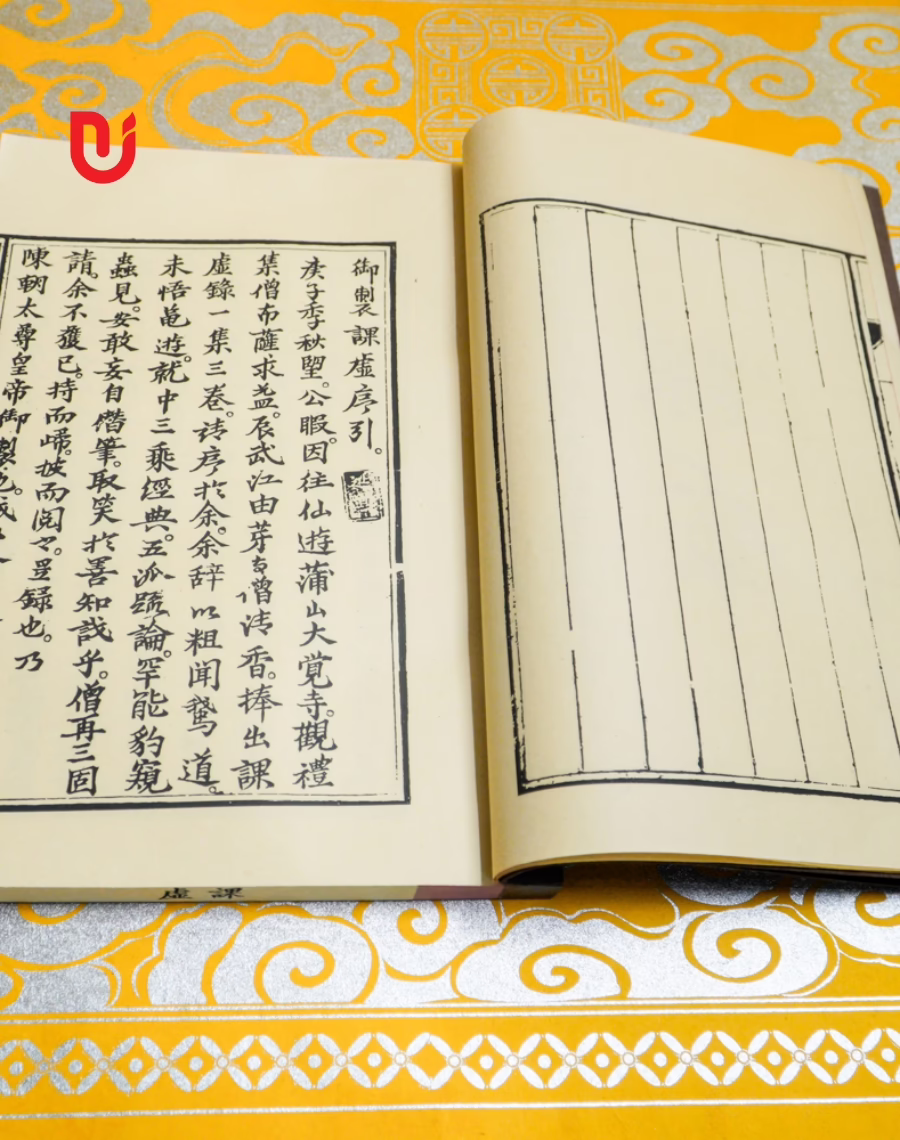 御製課虛序引。
庚子季秋朢。公暇因往仙遊蒲山大覚寺觀禮
集僧布薩求益。辰武江由芽寺僧清香。捧出課
虛錄一集三卷。請序於余。余辞以粗聞鷲道。
未悟黽遊。就中三乘經典。五派䟽論。罕能豹窺
蟲見。安敢妄自僭筆。取笑於善知識乎。僧再三固
請。余不獲已。持而歸。披而閱之。是録也。乃
陳朝太尊皇帝御製也。
課虛